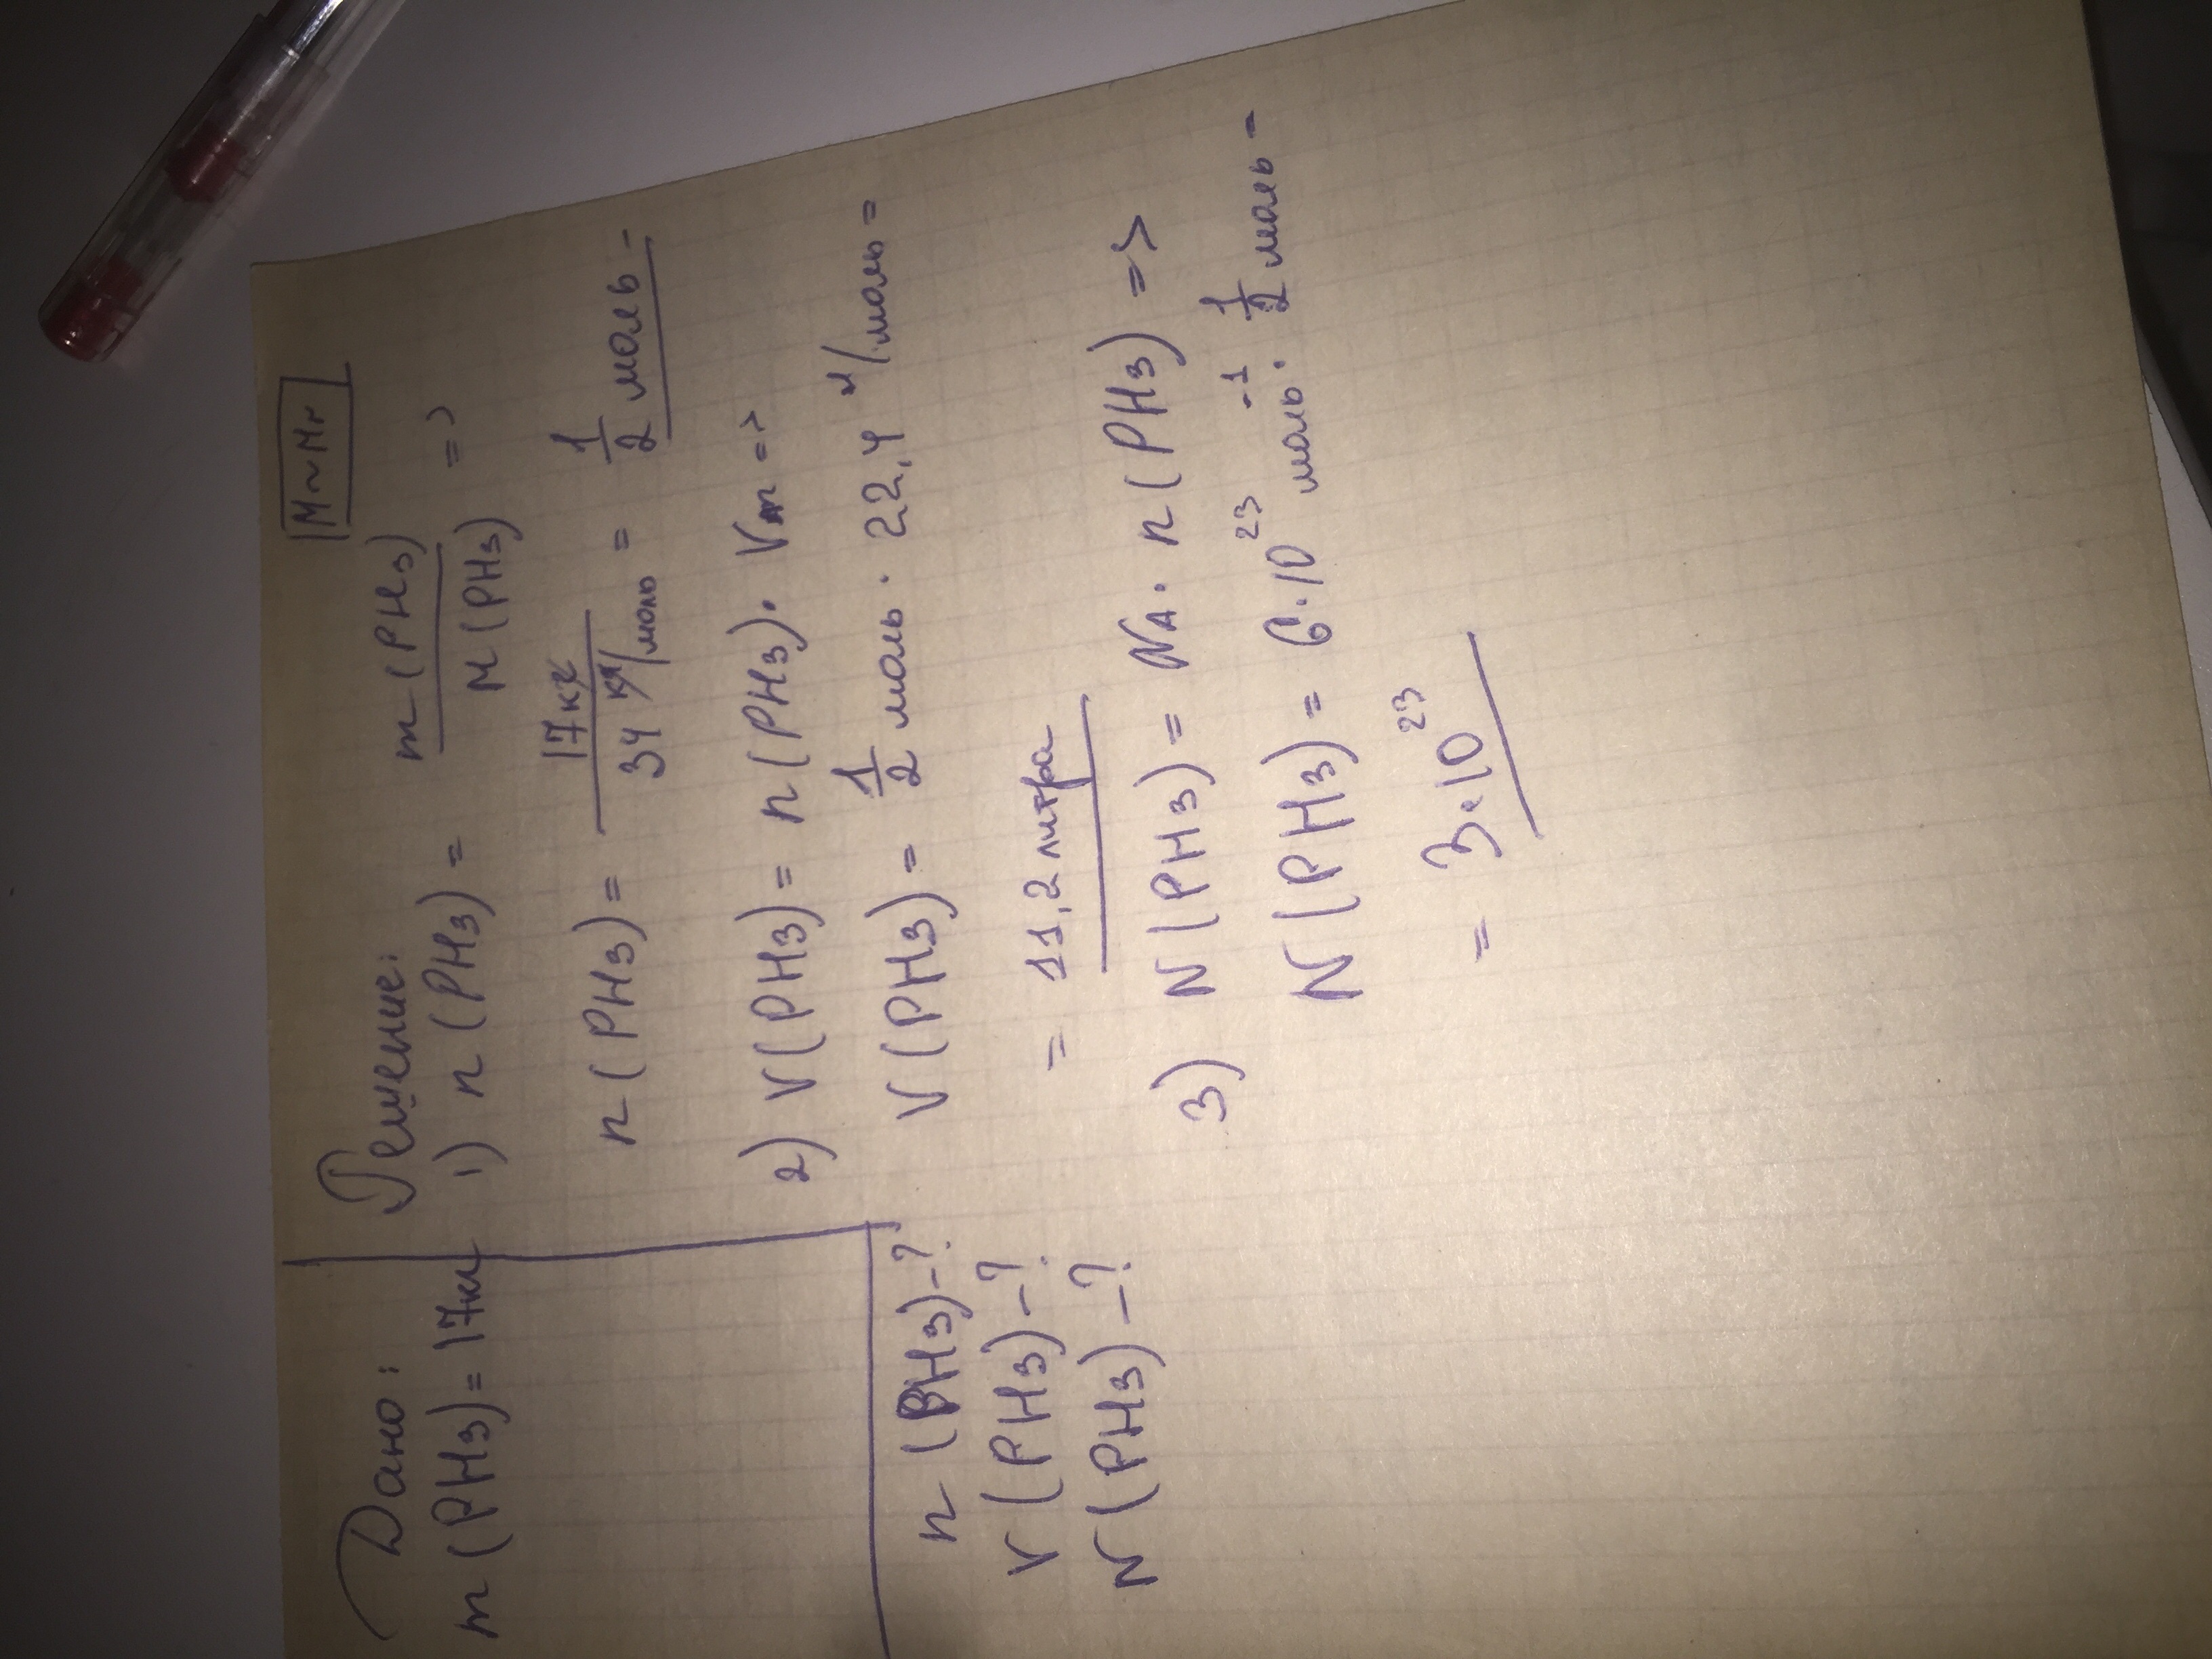 Дано:
m(PH3) = 17кг
n(PH3)-?
V(PH3)-?
N(PH3)-?
Решение:
M~Mr
1) n(PH3) = m(PH3)/M(PH3) =>
n(PH3) = 17кг/34 кг/моль = 1/2 моль -
2) V(PH3) = n(PH3) · Vm =>
V(PH3) = 1/2 моль · 22,4 л/моль =
= 11,2 литра
3) N(PH3) = NA · n(PH3) =>
N(PH3) = 6·10²³ моль⁻¹ · 1/2 моль =
= 3·10²³